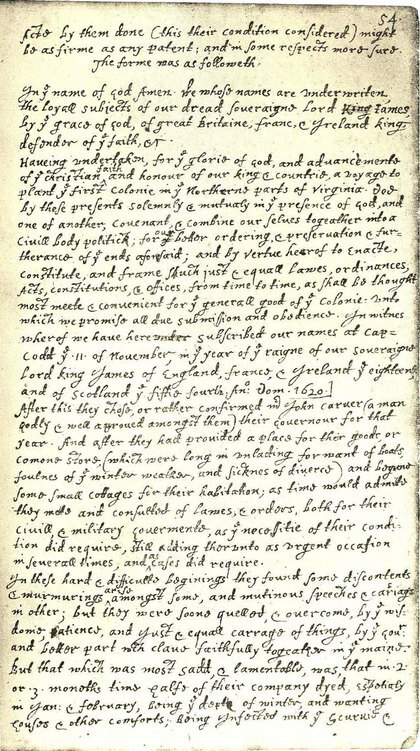 54
Acts by them done (this their condition considered) might
be as firme as any patent; and in some respects more sure.
The forme was as followeth.
In yᵉ name of god Amen. We whose names are underwriten,
the loyall subjects of our dread soveraigne Lord King James
by yᵉ grace of God, of great Britaine, franc, & Ireland king,
defender of yᵉ faith, &c
Haveing undertaken, for yᵉ glorie of god, and advancemente
of yᵉ christian faith and honour of our king & countrie, a voyage to
plant yᵉ first colonie in yᵉ Northerne parts of Virginia. Doe
by these presents solemnly & mutualy in yᵉ presence of god, and
one of another, covenant, & combine our selves togeather into a
civill body politick; for our better ordering, & preservation & fur-
therance of yᵉ ends aforesaid; and by vertue hearof to enacte,
constitute, and frame such just & equall lawes, ordinances,
Acts, constitutions, & offices, from time to time, as shall be thought
most meete & convenient for yᵉ generall good of yᵉ colonie: unto
which we promise all due submission and obedience. In witnes
wherof we have hereunder subscribed our names at cap-
Codd yᵉ .11. of November, in yᵉ year of yᵉ raigne of our soveraigne
Lord king James of England, france, & Ireland yᵉ eighteenth
and of Scotland yᵉ fiftie fourth. Ano: Dom. 1620.]
After this they chose, or rather confirmed mʳ John Carver (a man
godly & well approved amongst them) their governour for that
year. And after they had provided a place for their goods, or
comone store, (which were long in unlading for want of boats,
foulnes of yᵉ winter weather, and sicknes of diverce) and begune
some small cottages for their habitation; as time would admitte
they mette and consulted of lawes, & orders, both for their
civill & military govermente, as yᵉ necessitie of their condi-
tion did require, still adding therunto as urgent occasion
in severall times, and as cases did require.
In these hard & difficulte beginings they found some discontents
& murmurings arise amongst some, and mutinous speeches & cariags
in other; but they were soone quelled, & overcome, by yᵉ wis-
dome, patience, and just & equall carrage of things, by yᵉ Govʳ
and better part wᶜʰ clave faithfully togeather in yᵉ maine.
But that which was most sadd, & lamentable, was, that in .2.
or .3. moneths time halfe of their company dyed, espetialy
in Jan: & february, being yᵉ depth of winter, and wanting
houses & other comforts; being Infected with yᵉ scurvie &